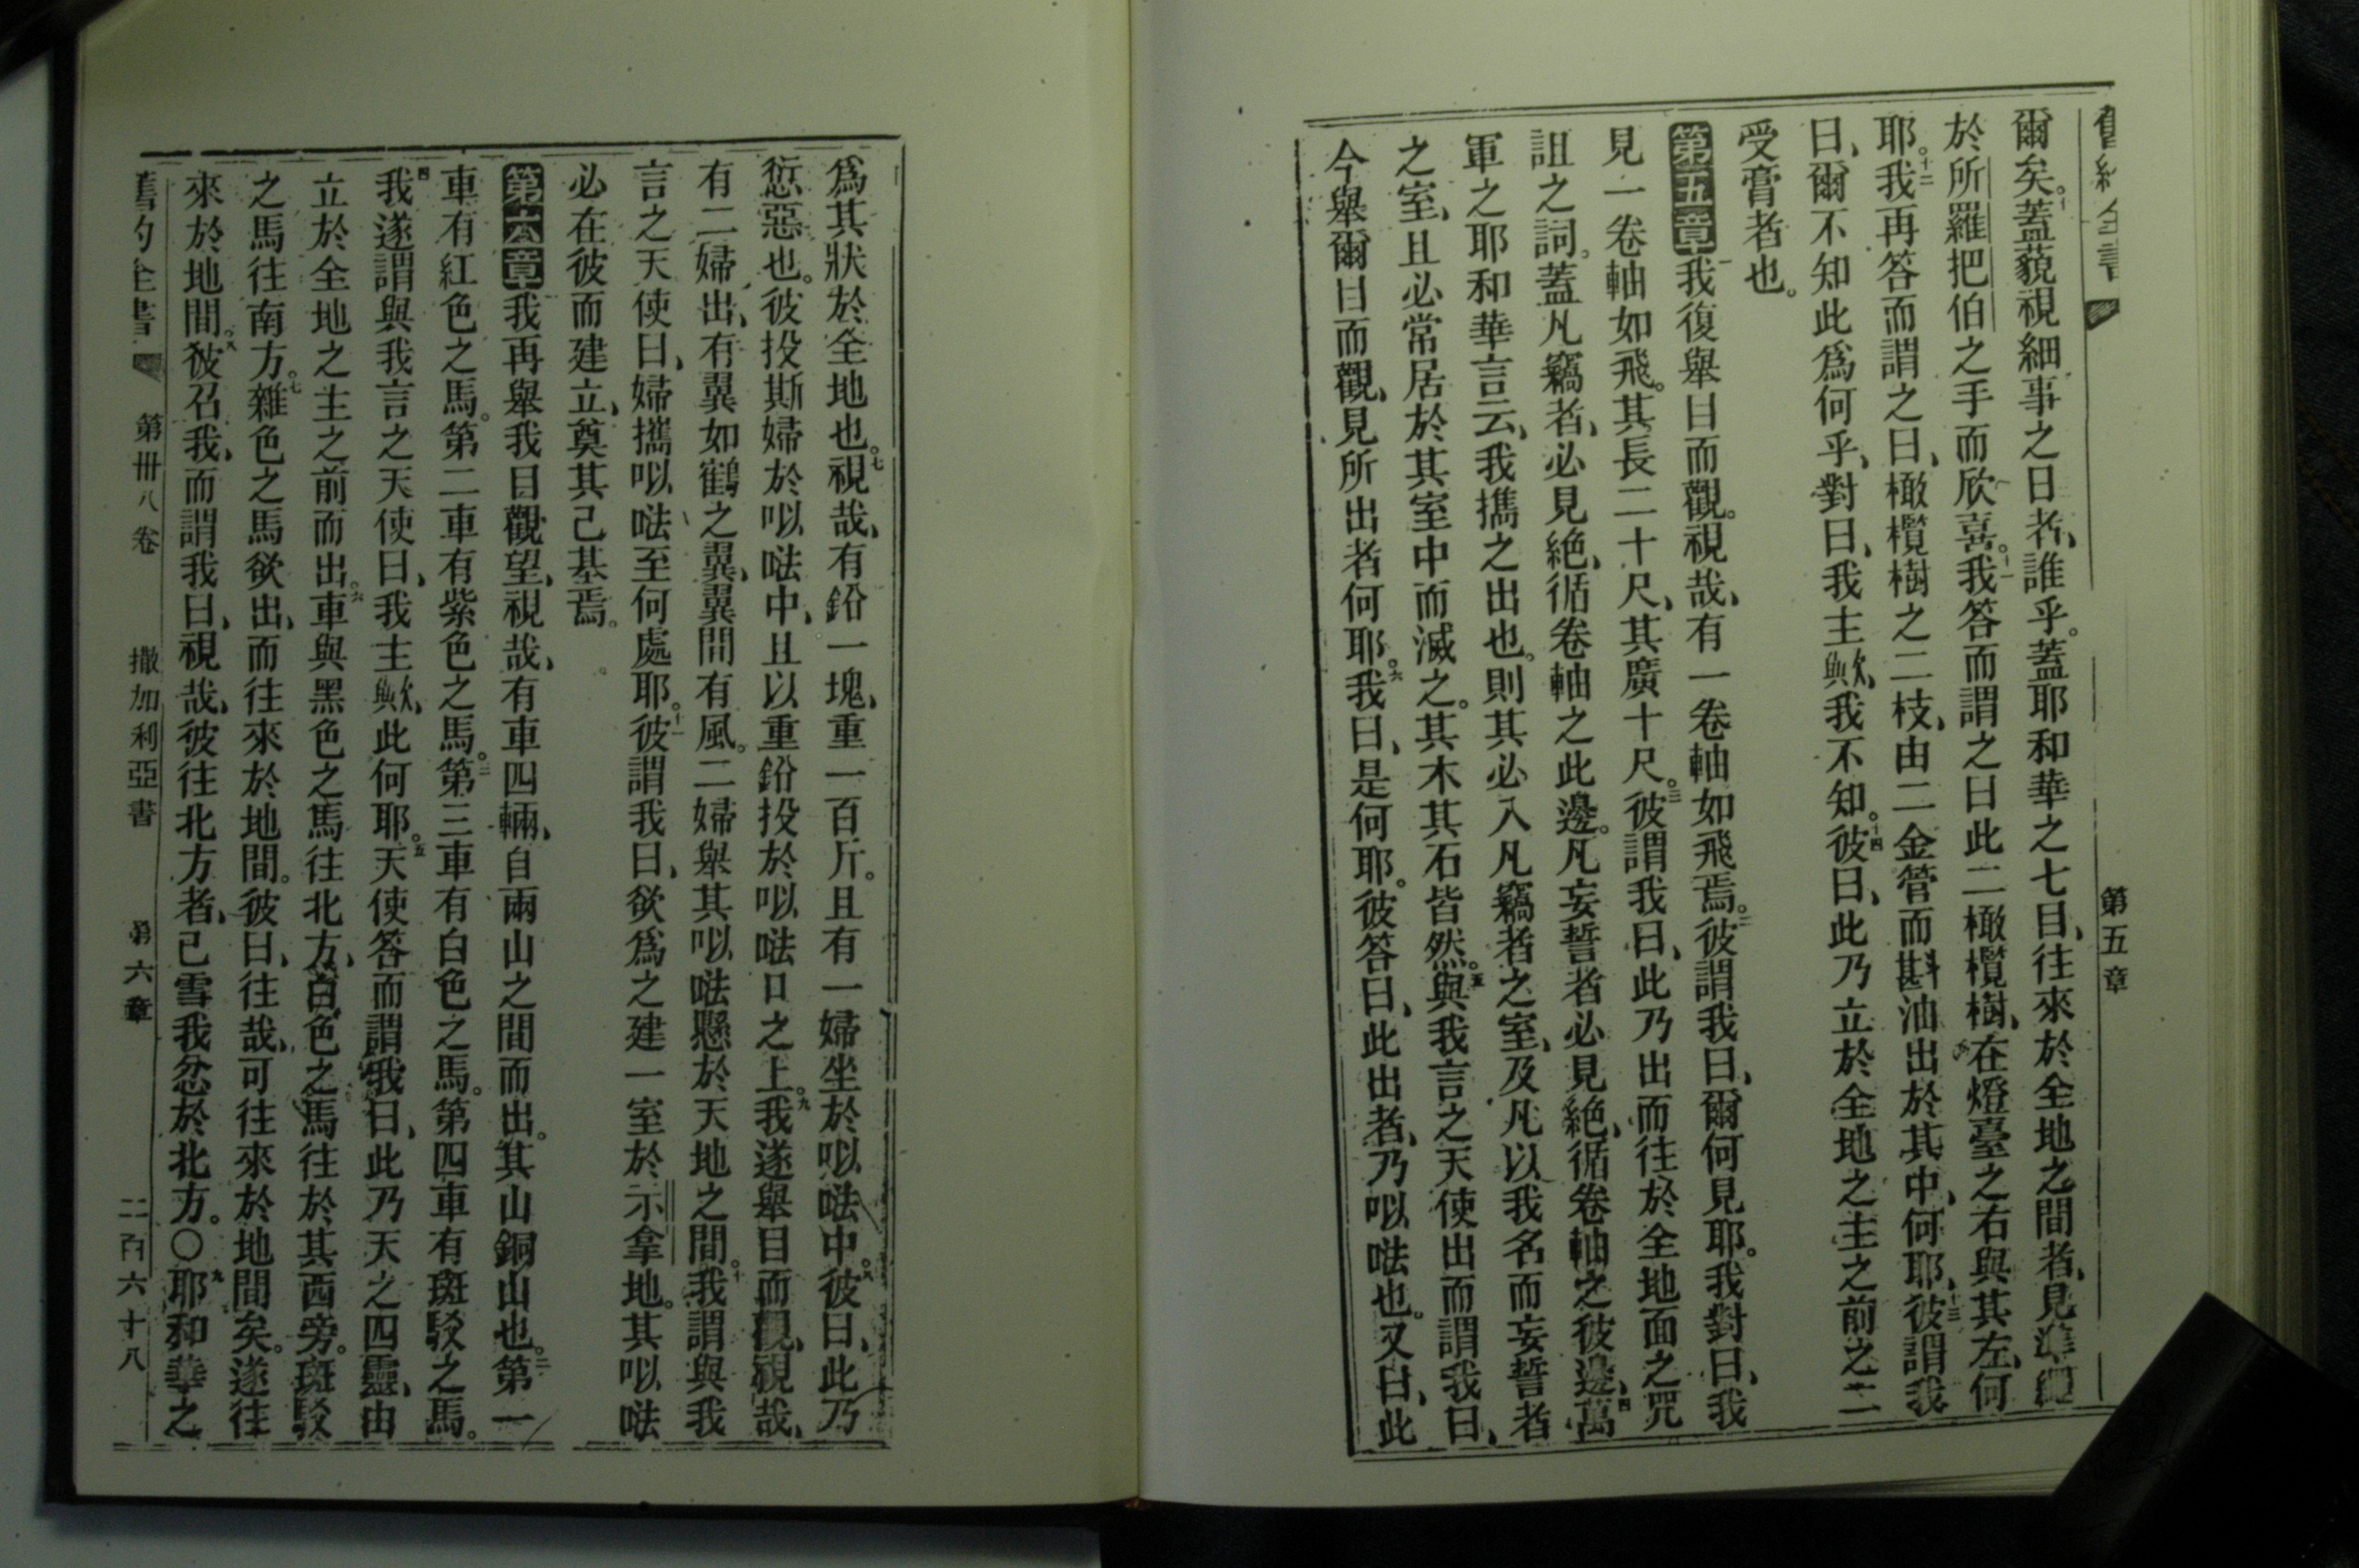 舊約全書
第五章
爾矣。十蓋藐視細事之日者、誰乎。蓋耶和華之七目、往來於全地之間者、見準繩
於所羅把伯之手而欣喜。十一我答而謂之曰此二橄欖樹、在燈臺之右與其左、何
耶。十二我再答而謂之曰、橄欖樹之二枝、由二金管而斟油出於其中、何耶、十三彼謂我
曰、爾不知此爲何乎、對曰、我主歟、我不知。十四彼曰、此乃立於全地之主之前之二
受膏者也。
第五章一我復舉目而觀。視哉、有一卷軸如飛焉。二彼謂我曰、爾何見耶。我對曰、我
見一卷軸如飛。其長二十尺、其廣十尺。三彼謂我曰、此乃出而往於全地面之咒
詛之詞。蓋凡竊者、必見絶、循卷軸之此邊。凡妄誓者必見絶、循卷軸之彼邊、四萬
軍之耶和華言云、我攜之出也。則其必入凡竊者之室、及凡以我名而妄誓者
之室、且必常居於其室中而滅之。其木其石皆然。五與我言之天使出而謂我曰、
今舉爾目而觀、見所出者何耶。六我曰、是何耶。彼答曰、此出者、乃㕥㗉也。又曰、此
爲其狀於全地也。七視哉、有鉛一塊、重一百斤。且有一婦坐於㕥㗉中。八彼曰、此乃
愆惡也。彼投斯婦於㕥㗉中、且以重鉛投於㕥㗉口之上。九我遂舉目而觀、視哉、
有二婦出、有翼如鶴之翼、翼間有風。二婦舉其㕥㗉懸於天地之間。十我謂與我
言之天使曰、婦攜㕥㗉至何處耶。十一彼謂我曰、欲爲之建一室於示拿地。其㕥㗉
必在彼而建立、奠其己基焉。
第六章一我再舉我目觀望、視哉、有車四輛、自兩山之間而出。其山銅山也。二第一
車有紅色之馬。第二車有紫色之馬。三第三車有白色之馬。第四車有斑駁之馬。
四我遂謂與我言之天使曰、我主歟、此何耶。五天使答而謂我曰、此乃天之四靈、由
立於全地之主之前而出。六車與黑色之馬往北方、白色之馬往於其西旁。斑駁
之馬往南方。七雜色之馬欲出、而往來於地間。彼曰、往哉、可往來於地間矣。遂往
來於地間。八彼召我、而謂我曰、視哉、彼往北方者、己雪我忿於北方。〇九耶和華之
舊約全書
第卅八卷
撒加利亞書
第六章
二百六十八